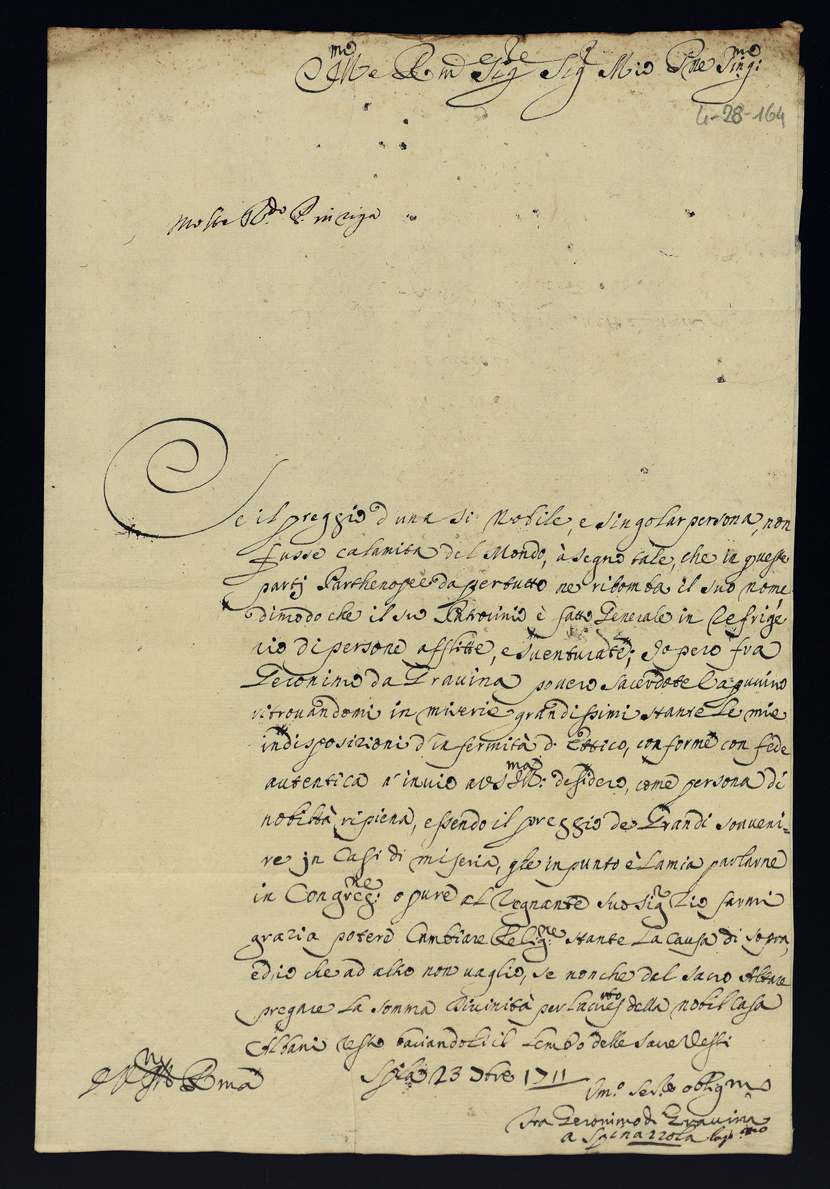 Sig.r Mio
4-28-164
Molto R.do P. in riga
Se il preggio d'una si Nobile, e singolar persona, non
fusse calamita del Mondo, à segno tale, che in queste
partj Parthenopee da per tutto ne ribomba il suo nome
dimodo che il suo Patrocinio è fatto Generale in Refrige
rio di persone afflitte, e sventurate; Io però fra
Geronimo da Gravina povero sacerdote Capuccino
ritrovandomi in miserie grandissimi stante le mie
indisposizioni d'infermità d'Ettico, conforme con fede
autentica n'invio a VS Ill.ma: desidero, come persona di
nobiltà ripiena, essendo il preggio de Grandi souveni=
re jn Casi di miseria, q'le inpunto è la mia parlarne
in Congreg.ne: o pure al Regnante suo Sig.r Zio farmi
grazia potere Cambiare Relig.ne stante la causa di sopra,
ed io che ad altro non vaglio, se nonche del Sacro Altare
pregare la Somma Divinità per della nobil Casa
Albani resto baciandoli il lembo delle Sacre Vesti
23 1711
Um.o obligm.o
Fra Geronimo di Gravina
a Spinazzola